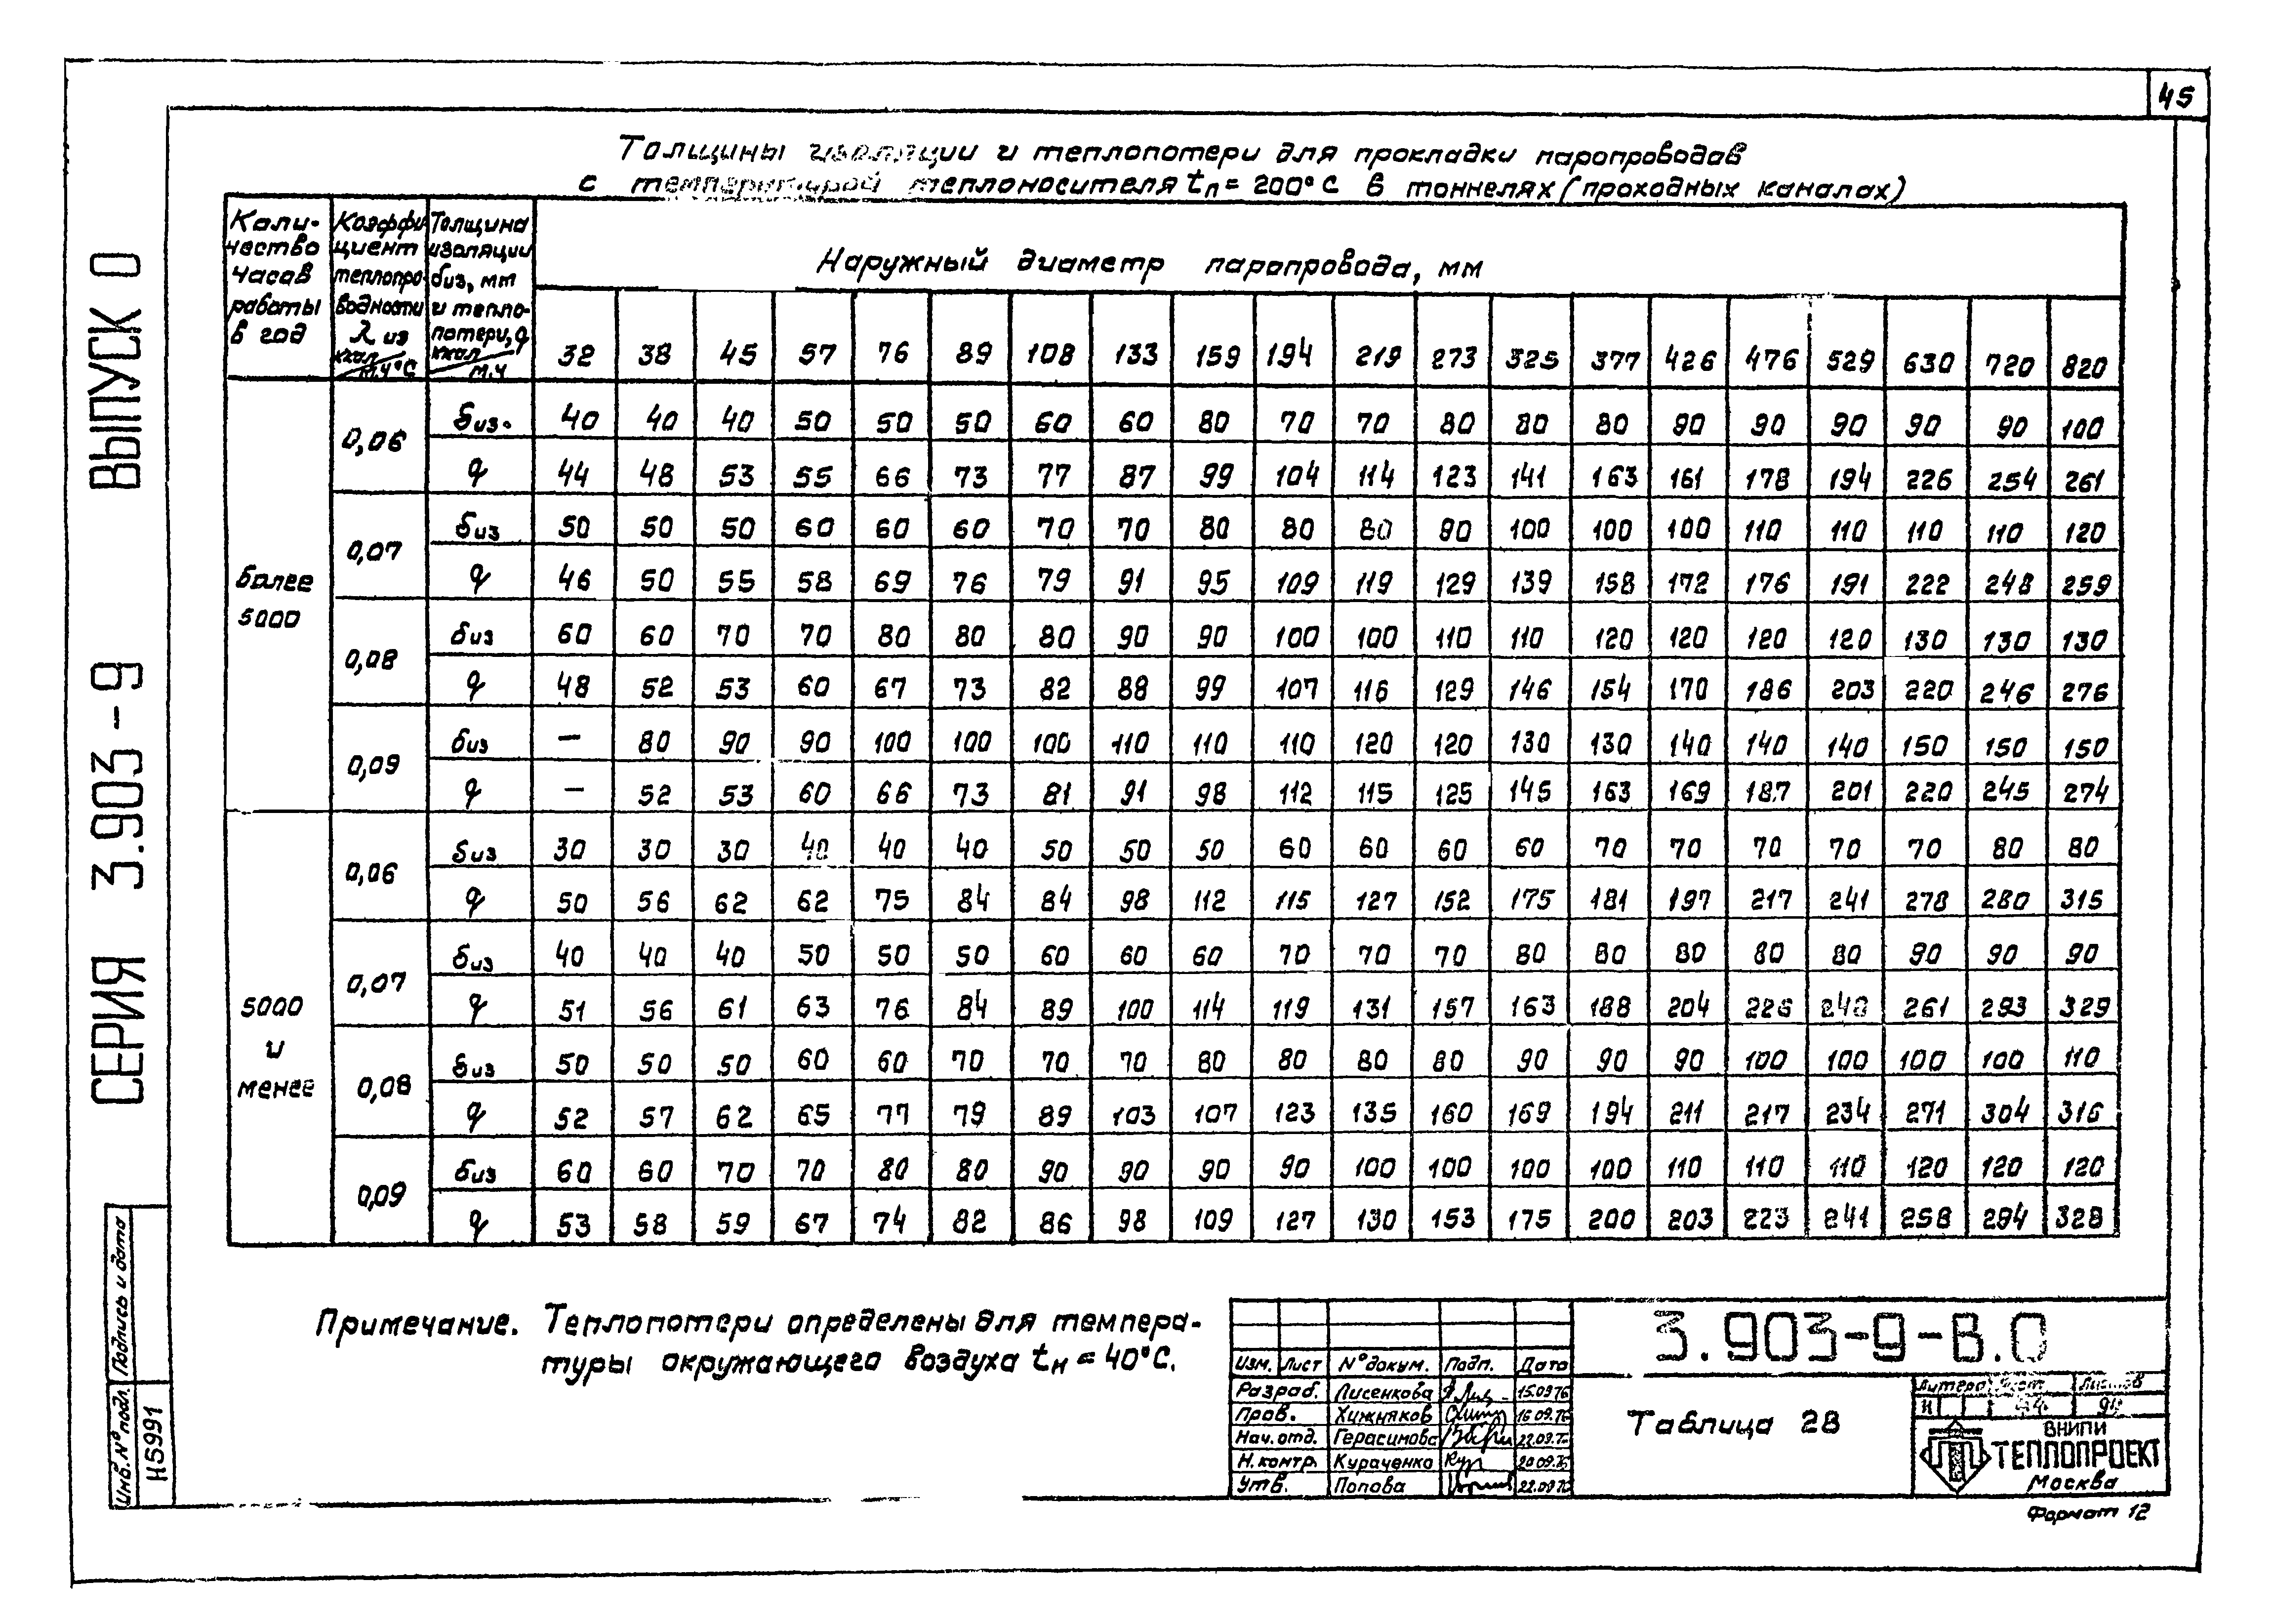 45
Толщины изоляции и теплопотери для прокладки паропроводов
с температурой теплоносителя tп = 200°С в тоннелях (проходных каналах)
Коли-
чество
часов
работы
в год
Коэффи
циент
теплопро-
водности
λ из
ккал/м.ч°С
Толщина
изоляции
биз, мм
и тепло-
потери, q
ккал/м.ч
Наружный диаметр паропровода, мм
32 38 45 57 76 89 108 133 159 194 219 273 325 377 426 476 529 630 720 820
более
5000
0,06
биз. 40 40 40 50 50 50 60 60 80 70 70 80 80 80 90 90 90 90 90 100
q 44 48 53 55 66 73 77 87 99 104 114 123 141 163 161 178 194 226 254 261
0,07
биз 50 50 50 60 60 60 70 70 80 80 80 90 100 100 100 110 110 110 110 120
q 46 50 55 58 69 76 79 91 95 109 119 129 139 158 172 176 191 222 248 259
0,08
биз 60 60 70 70 80 80 80 90 90 100 100 110 110 120 120 120 120 130 130 130
q 48 52 53 60 67 73 82 88 99 107 116 129 146 154 170 186 203 220 246 276
0,09
биз — 80 90 90 100 100 100 110 110 110 120 120 130 130 140 140 140 150 150 150
q — 52 53 60 66 73 81 91 98 112 115 125 145 163 169 187 201 220 245 274
5000
и
менее
0,06
биз 30 30 30 40 40 40 50 50 50 60 60 60 60 70 70 70 70 70 80 80
q 50 56 62 62 75 84 84 98 112 115 127 152 175 181 197 217 241 278 280 315
0,07
биз 40 40 40 50 50 50 60 60 60 70 70 70 80 80 80 80 80 90 90 90
q 51 56 61 63 76 84 89 100 114 119 131 157 163 188 204 226 248 261 293 329
0,08
биз 50 50 50 60 60 70 70 70 80 80 80 80 90 90 90 100 100 100 100 110
q 52 57 62 65 77 79 89 103 107 123 135 160 169 194 211 217 234 271 304 316
0,09
биз 60 60 70 70 80 80 90 90 90 90 100 100 100 100 110 110 110 120 120 120
q 53 58 59 67 74 82 86 98 109 127 130 153 175 200 203 223 241 258 294 328
Примечание. Теплопотери определены для темпера-
туры окружающего воздуха tн = 40°С.
СЕРИЯ 3.903-9 ВЫПУСК 0
Подпись и дата
Инв. N° подл.
Н5991
Изм. Лист N° докум. Подп. Дата
Разраб. Лисенкова 15.09.76
Пров. Хижняков 16.09.76
Нач. отд. Герасимова 22.09.76
Н. контр. Кураченко 20.09.76
Утв. Попова 22.09.76
3.903-9-В.0
Таблица 28
Литера Лист Листов
И
ВНИПИ
ТЕПЛОПРОЕКТ
Москва
Формат 12